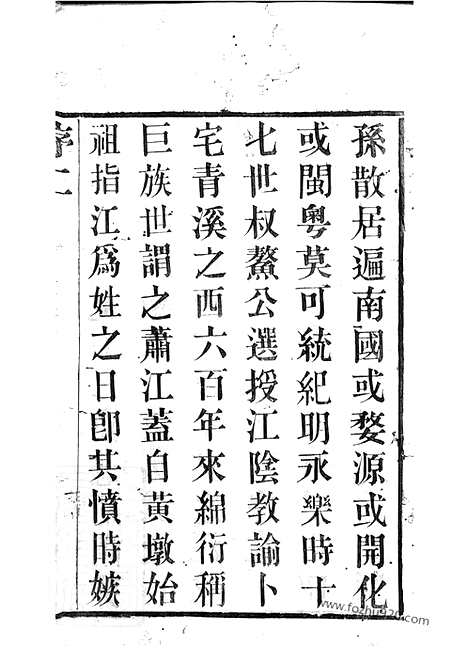 孫散居遍南國或婺源或開化
或閩粵莫可統紀明永樂時十
七世叔鰲公選授江陰教諭卜
宅青溪之西六百年來綿衍稱
巨族世謂之蕭江蓋自黃墩始
祖指江爲姓之日卽其憤時嫉
序二
www.fozhu920.com